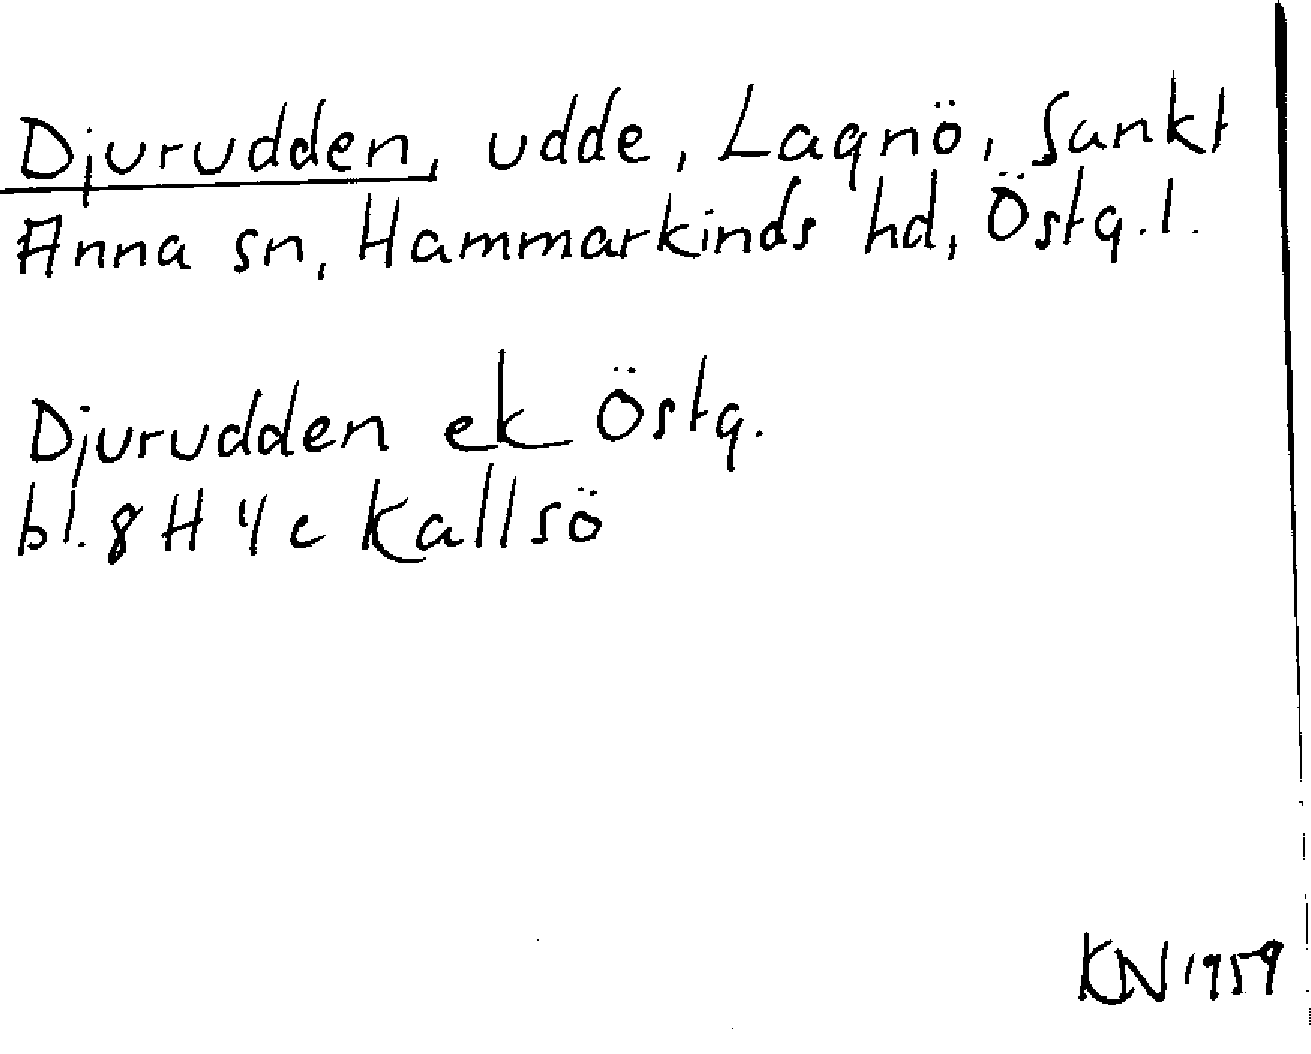 Djurudden, udde, Lagnö, Sankt
Anna sn, Hammarkinds hd, Östg.l.
Djurudden ek Östg.
bl. 8 H 4 c Kallsö
KN 1959